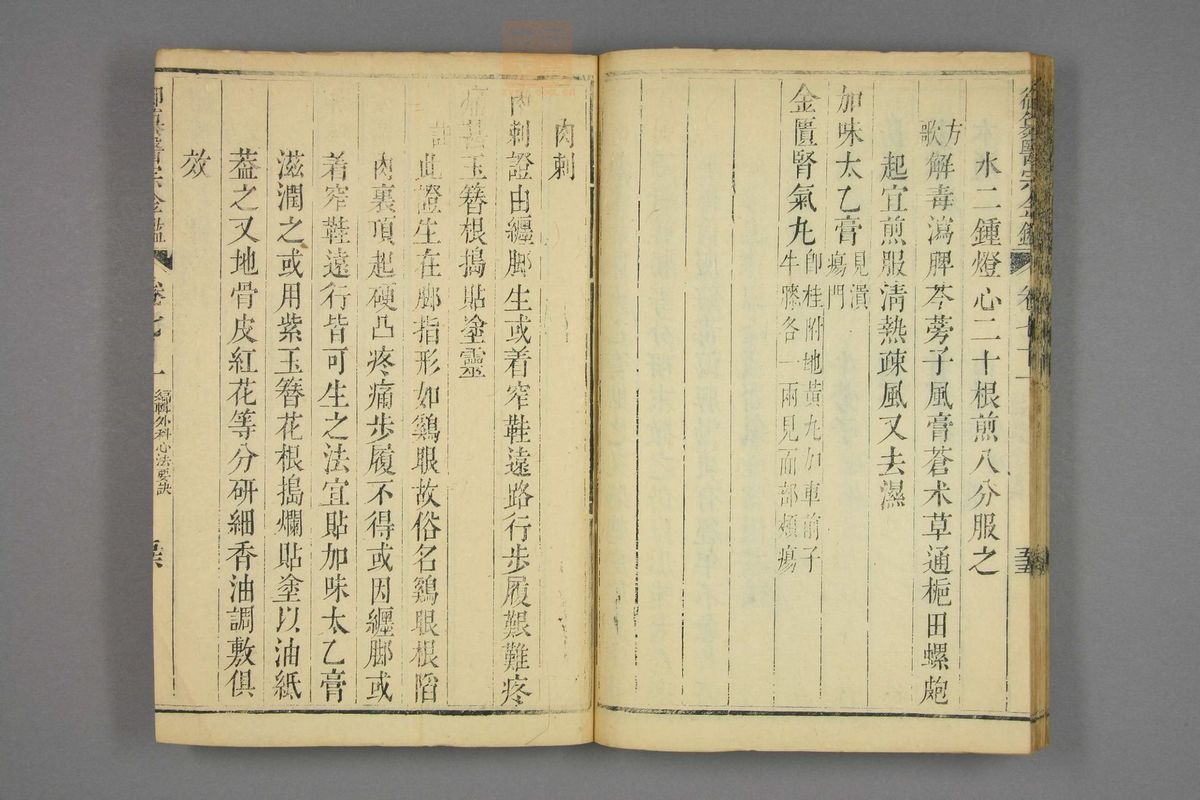 御纂醫宗金鑑 卷七十一 五五
水二鍾燈心二十根煎八分服之
方歌
解毒瀉脾芩蒡子風膏蒼朮草通梔田螺皰
起宜煎服清熱疎風又去濕
加味太乙膏 見潰瘍門
金匱腎氣丸 卽桂附地黃丸加車前子
牛膝各一兩見面部頰瘍
肉刺
肉刺證由纏脚生或着窄鞋遠路行步履艱難疼
痛甚玉簪根搗貼塗靈
註
此證生在脚指形如鷄眼故俗名鷄眼根陷
肉裏頂起硬凸疼痛步履不得或因纏脚或
着窄鞋遠行皆可生之法宜貼加味太乙膏
滋潤之或用紫玉簪花根搗爛貼塗以油紙
葢之又地骨皮紅花等分研細香油調敷俱
效
御纂醫宗金鑑 卷七十一 編輯外科心法要訣 五六